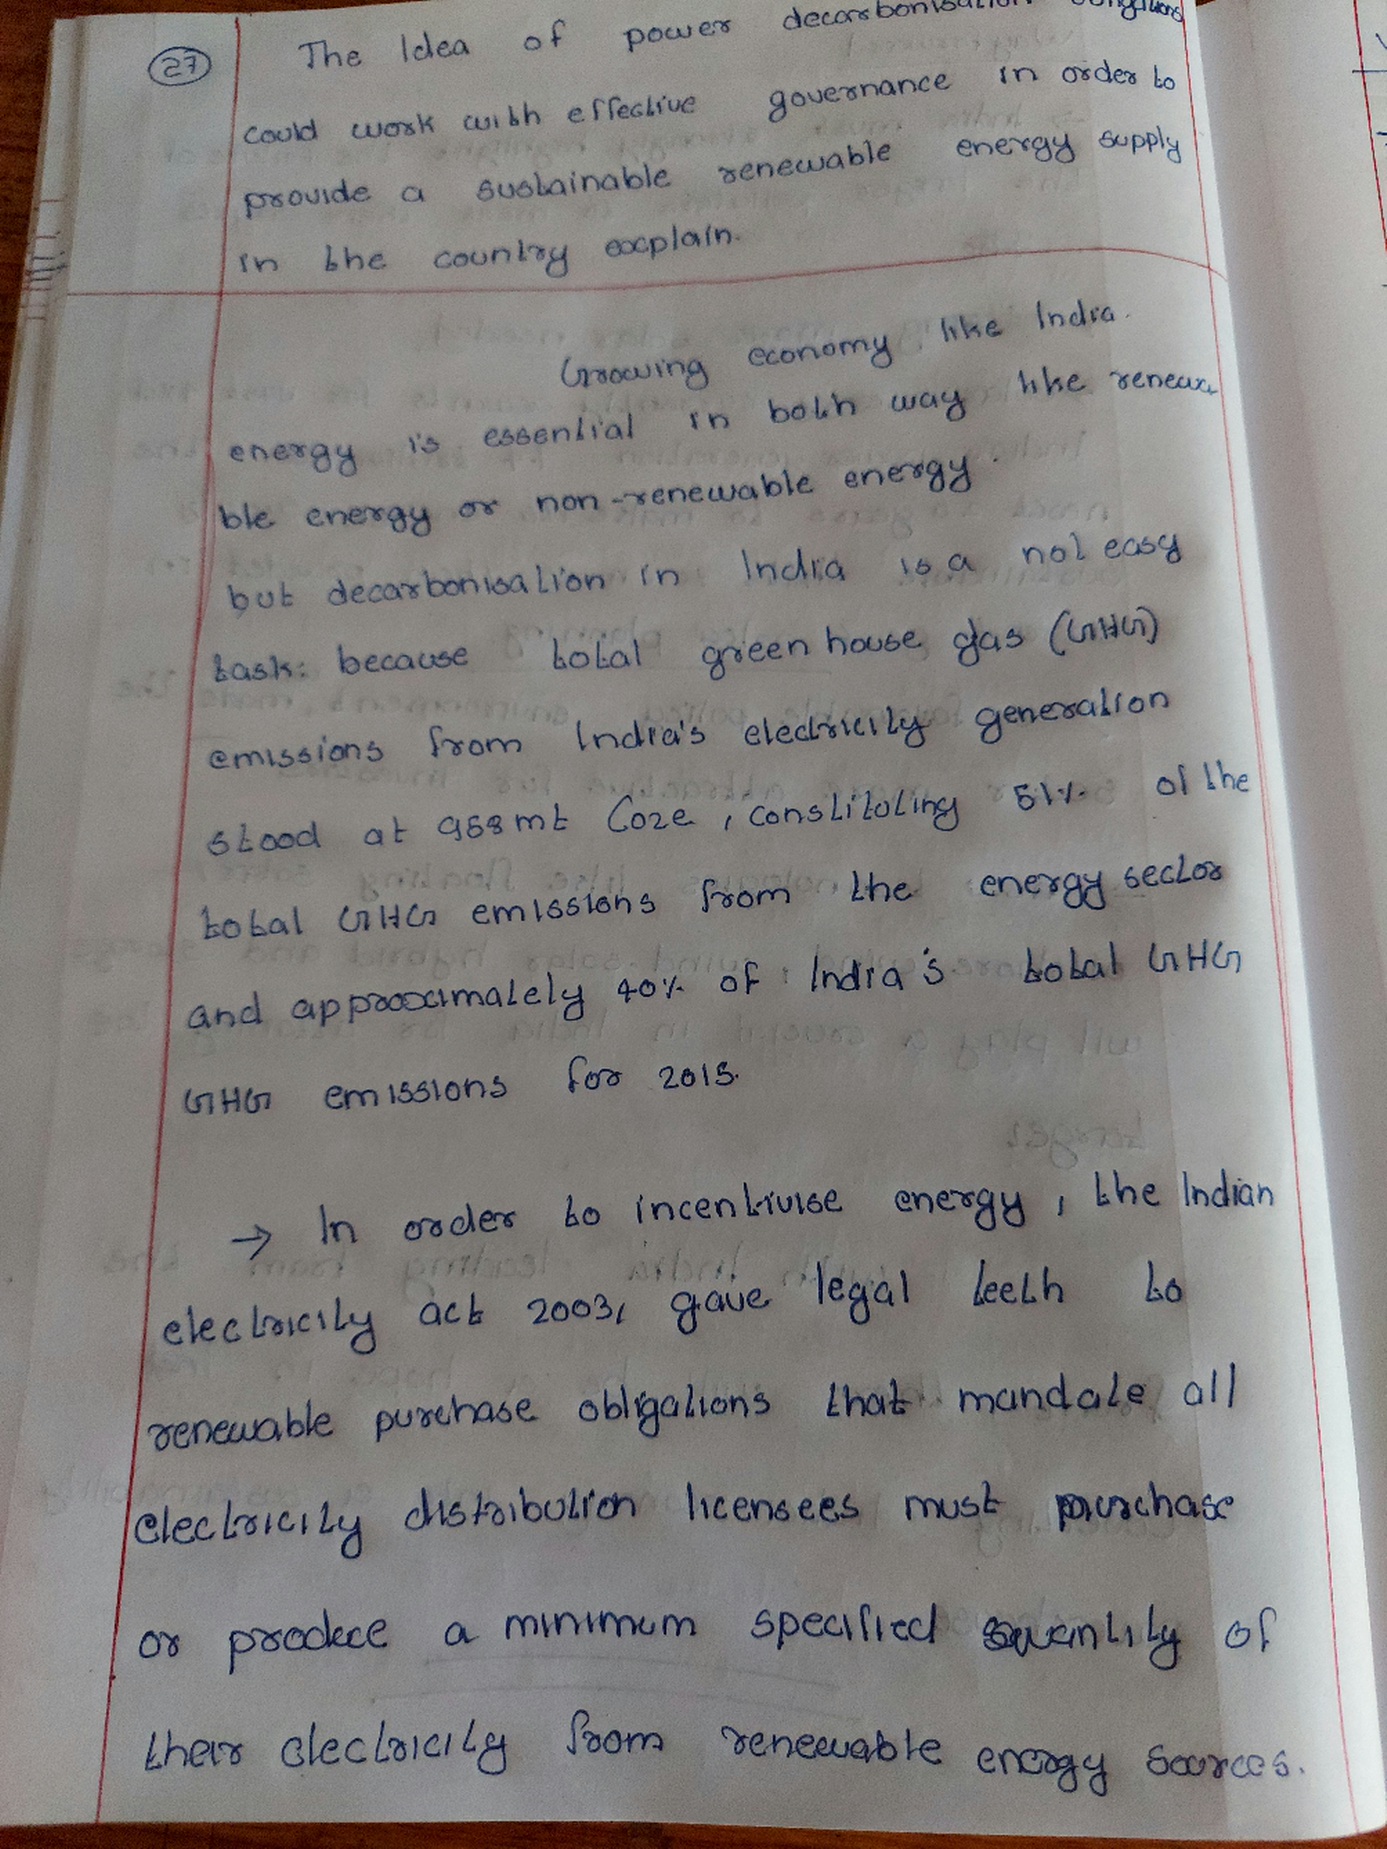 27
The Idea of power decarbonisation obligations
could work with effective governance in order to
provide a sustainable renewable energy supply
in the country explain.
Growing economy like India.
energy is essential in both way like renewa
ble energy or non-renewable energy.
but decarbonisation in India is a not easy
task: because total green house gas (GHG)
emissions from India's electricity generation
stood at 968 mt Co2e, constituting 51% of the
total GHG emissions from the energy sector
and approximately 40% of India's total GHG
GHG emissions for 2015.
→ In order to incentivise energy, the Indian
electricity act 2003, gave legal teeth to
renewable purchase obligations that mandate all
electricity distribution licensees must purchase
or produce a minimum specified quantity of
their electricity from renewable energy sources.